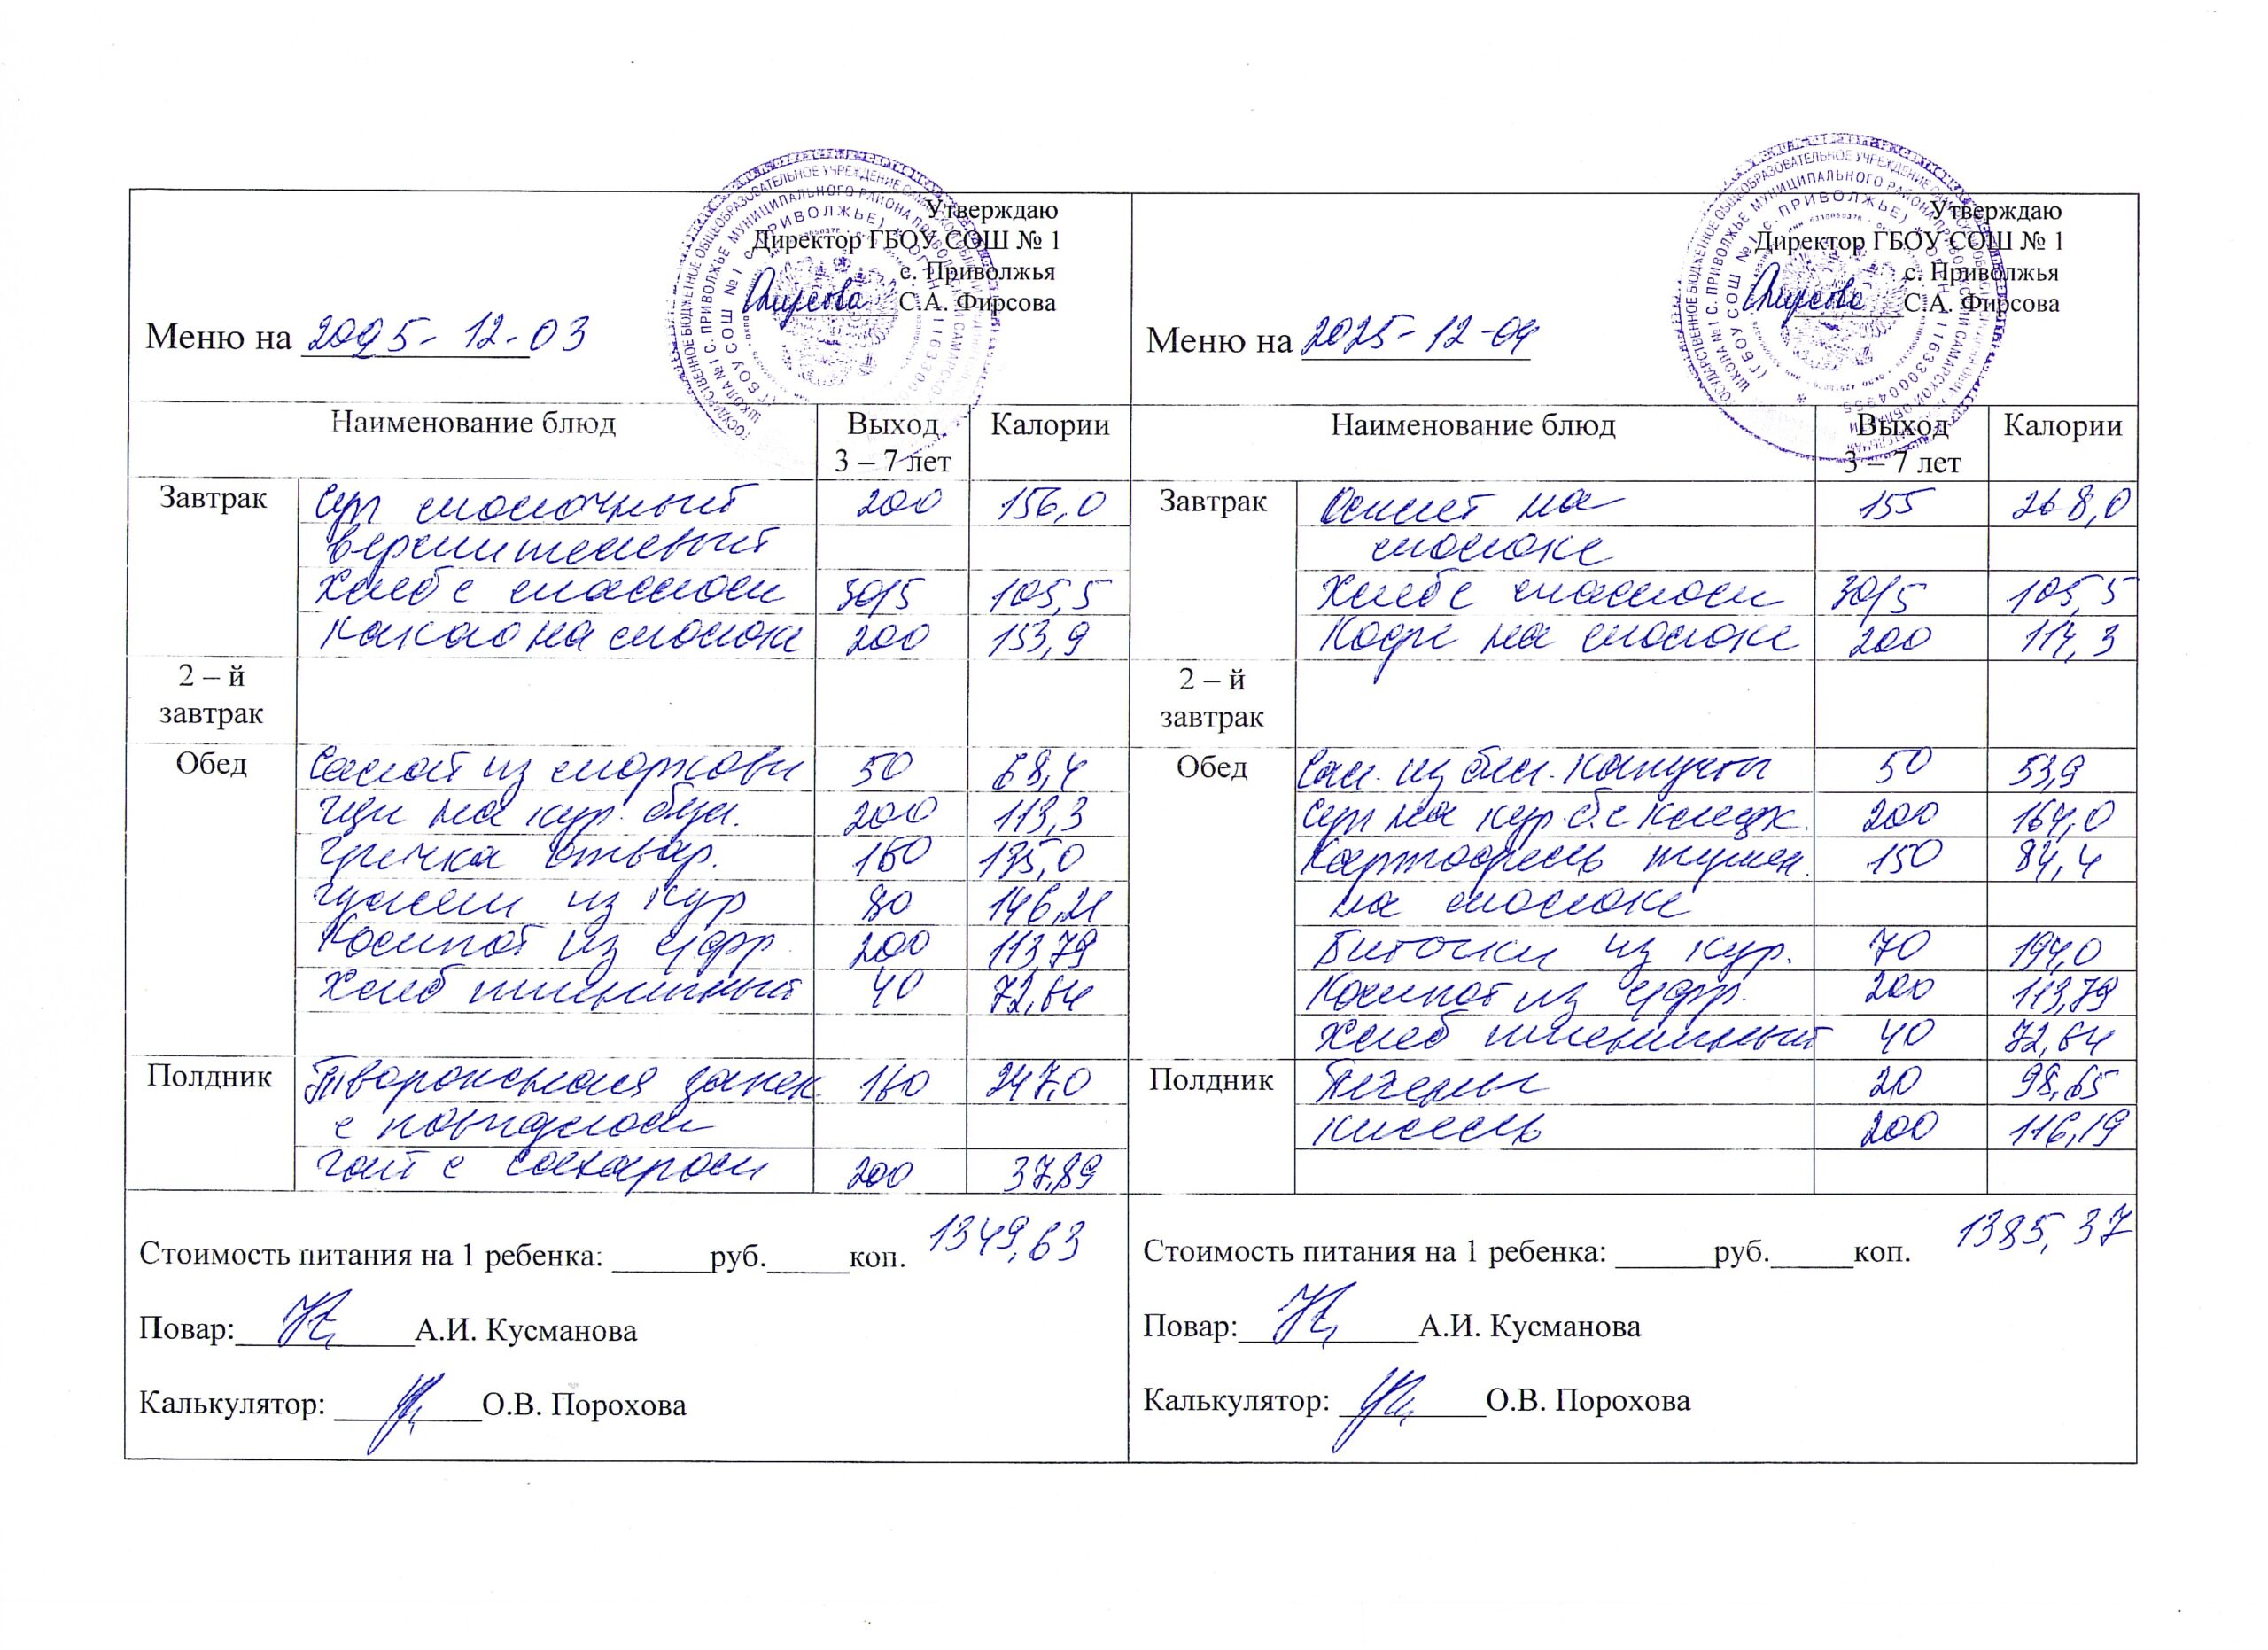 Утверждаю
Директор ГБОУ СОШ № 1
с. Приволжья
С.А. Фирсова
Меню на 2025-12-03
Наименование блюд Выход 3 – 7 лет Калории
Завтрак Суп молочный 200 156,0
вермишелевый
Хлеб с маслом 30/5 105,5
Какао на молоке 200 153,9
2 – й завтрак
Обед Салат из моркови 50 68,4
Щи на кур. бул. 200 113,3
Гречка отвар. 135,0
Гуляш из кур 80 146,21
Компот из с/фр. 200 113,79
Хлеб пшеничный 40 72,64
Полдник Творожная запек. 247,0
с повидлом
Чай с сахаром 200 37,89
Стоимость питания на 1 ребенка: ______руб._____коп. 1349,63
Повар: А.И. Кусманова
Калькулятор: О.В. Порохова
Утверждаю
Директор ГБОУ СОШ № 1
с. Приволжья
С.А. Фирсова
Меню на 2025-12-04
Наименование блюд Выход 3 – 7 лет Калории
Завтрак Омлет на 155 268,0
молоке
Хлеб с маслом 30/5 105,5
Кофе на молоке 200 114,3
2 – й завтрак
Обед Сал. из бел. капусты 50 53,9
Суп на кур. б. с клецк. 200 164,0
Картофель тушен. 150 84,4
на молоке
Биточки из кур. 70 194,0
Компот из с/фр. 200 113,79
Хлеб пшеничный 40 72,64
Полдник Печенье 20 98,65
Кисель 200 116,19
Стоимость питания на 1 ребенка: ______руб._____коп. 1385,37
Повар: А.И. Кусманова
Калькулятор: О.В. Порохова